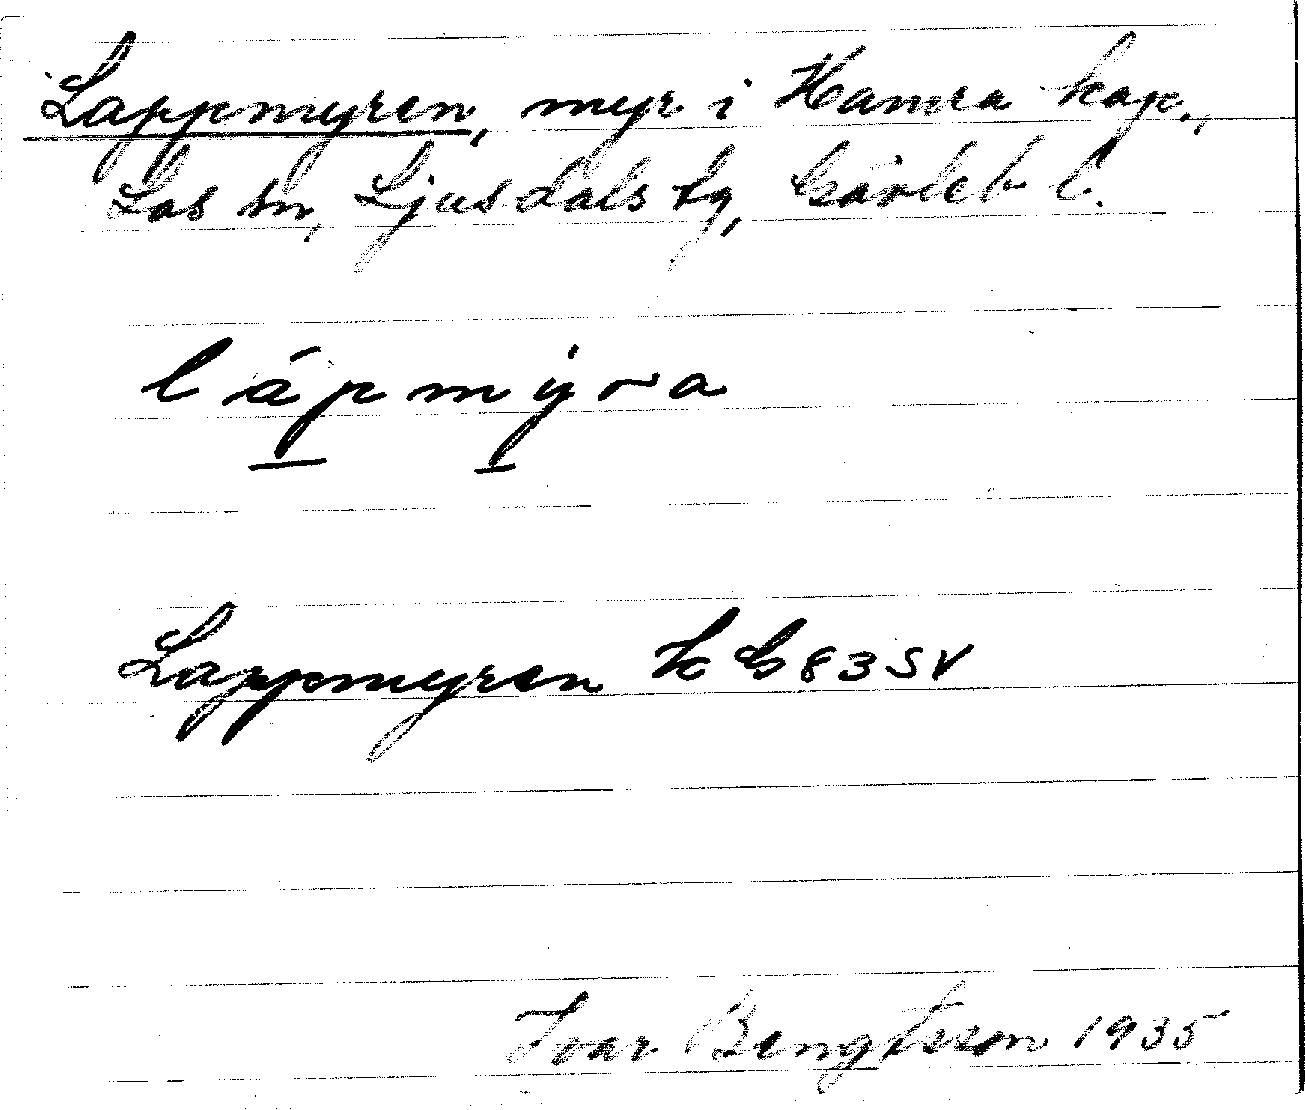 Lappmyren, myr i Hamra kap.,
Los sn, Ljusdals tg, Gävleb. l.
lápmýra
Lappmyren k G 83 SV
Ivar Bengtsson 1935